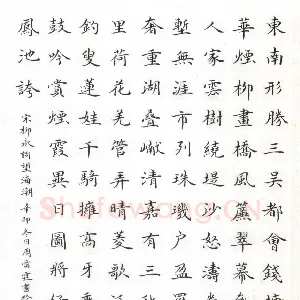 東南形勝三吳都會錢
華煙柳畫橋風簾翠幕
人家雲樹繞堤沙怒濤
塹無涯市列珠璣户盈
奢重湖疊巘清嘉有三
里荷花羌管弄晴菱歌
釣叟蓮娃千騎擁高牙
鼓吟賞煙霞異日圖將
鳳池誇
宋柳永詞望海潮辛卯冬日周